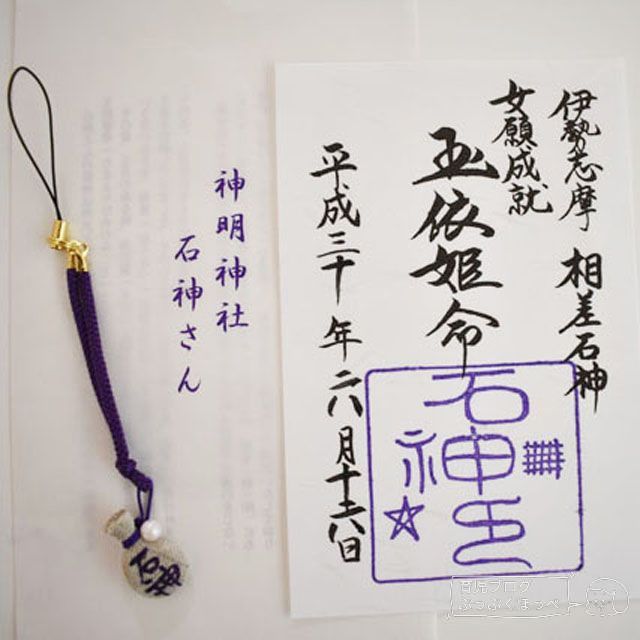 伊勢志摩 相差石神
女願成就
玉依姫命
平成三十年六月十六日
石神印
神明神社
石神さん
石神
育児ブログ
ぷっぷくほっぺ